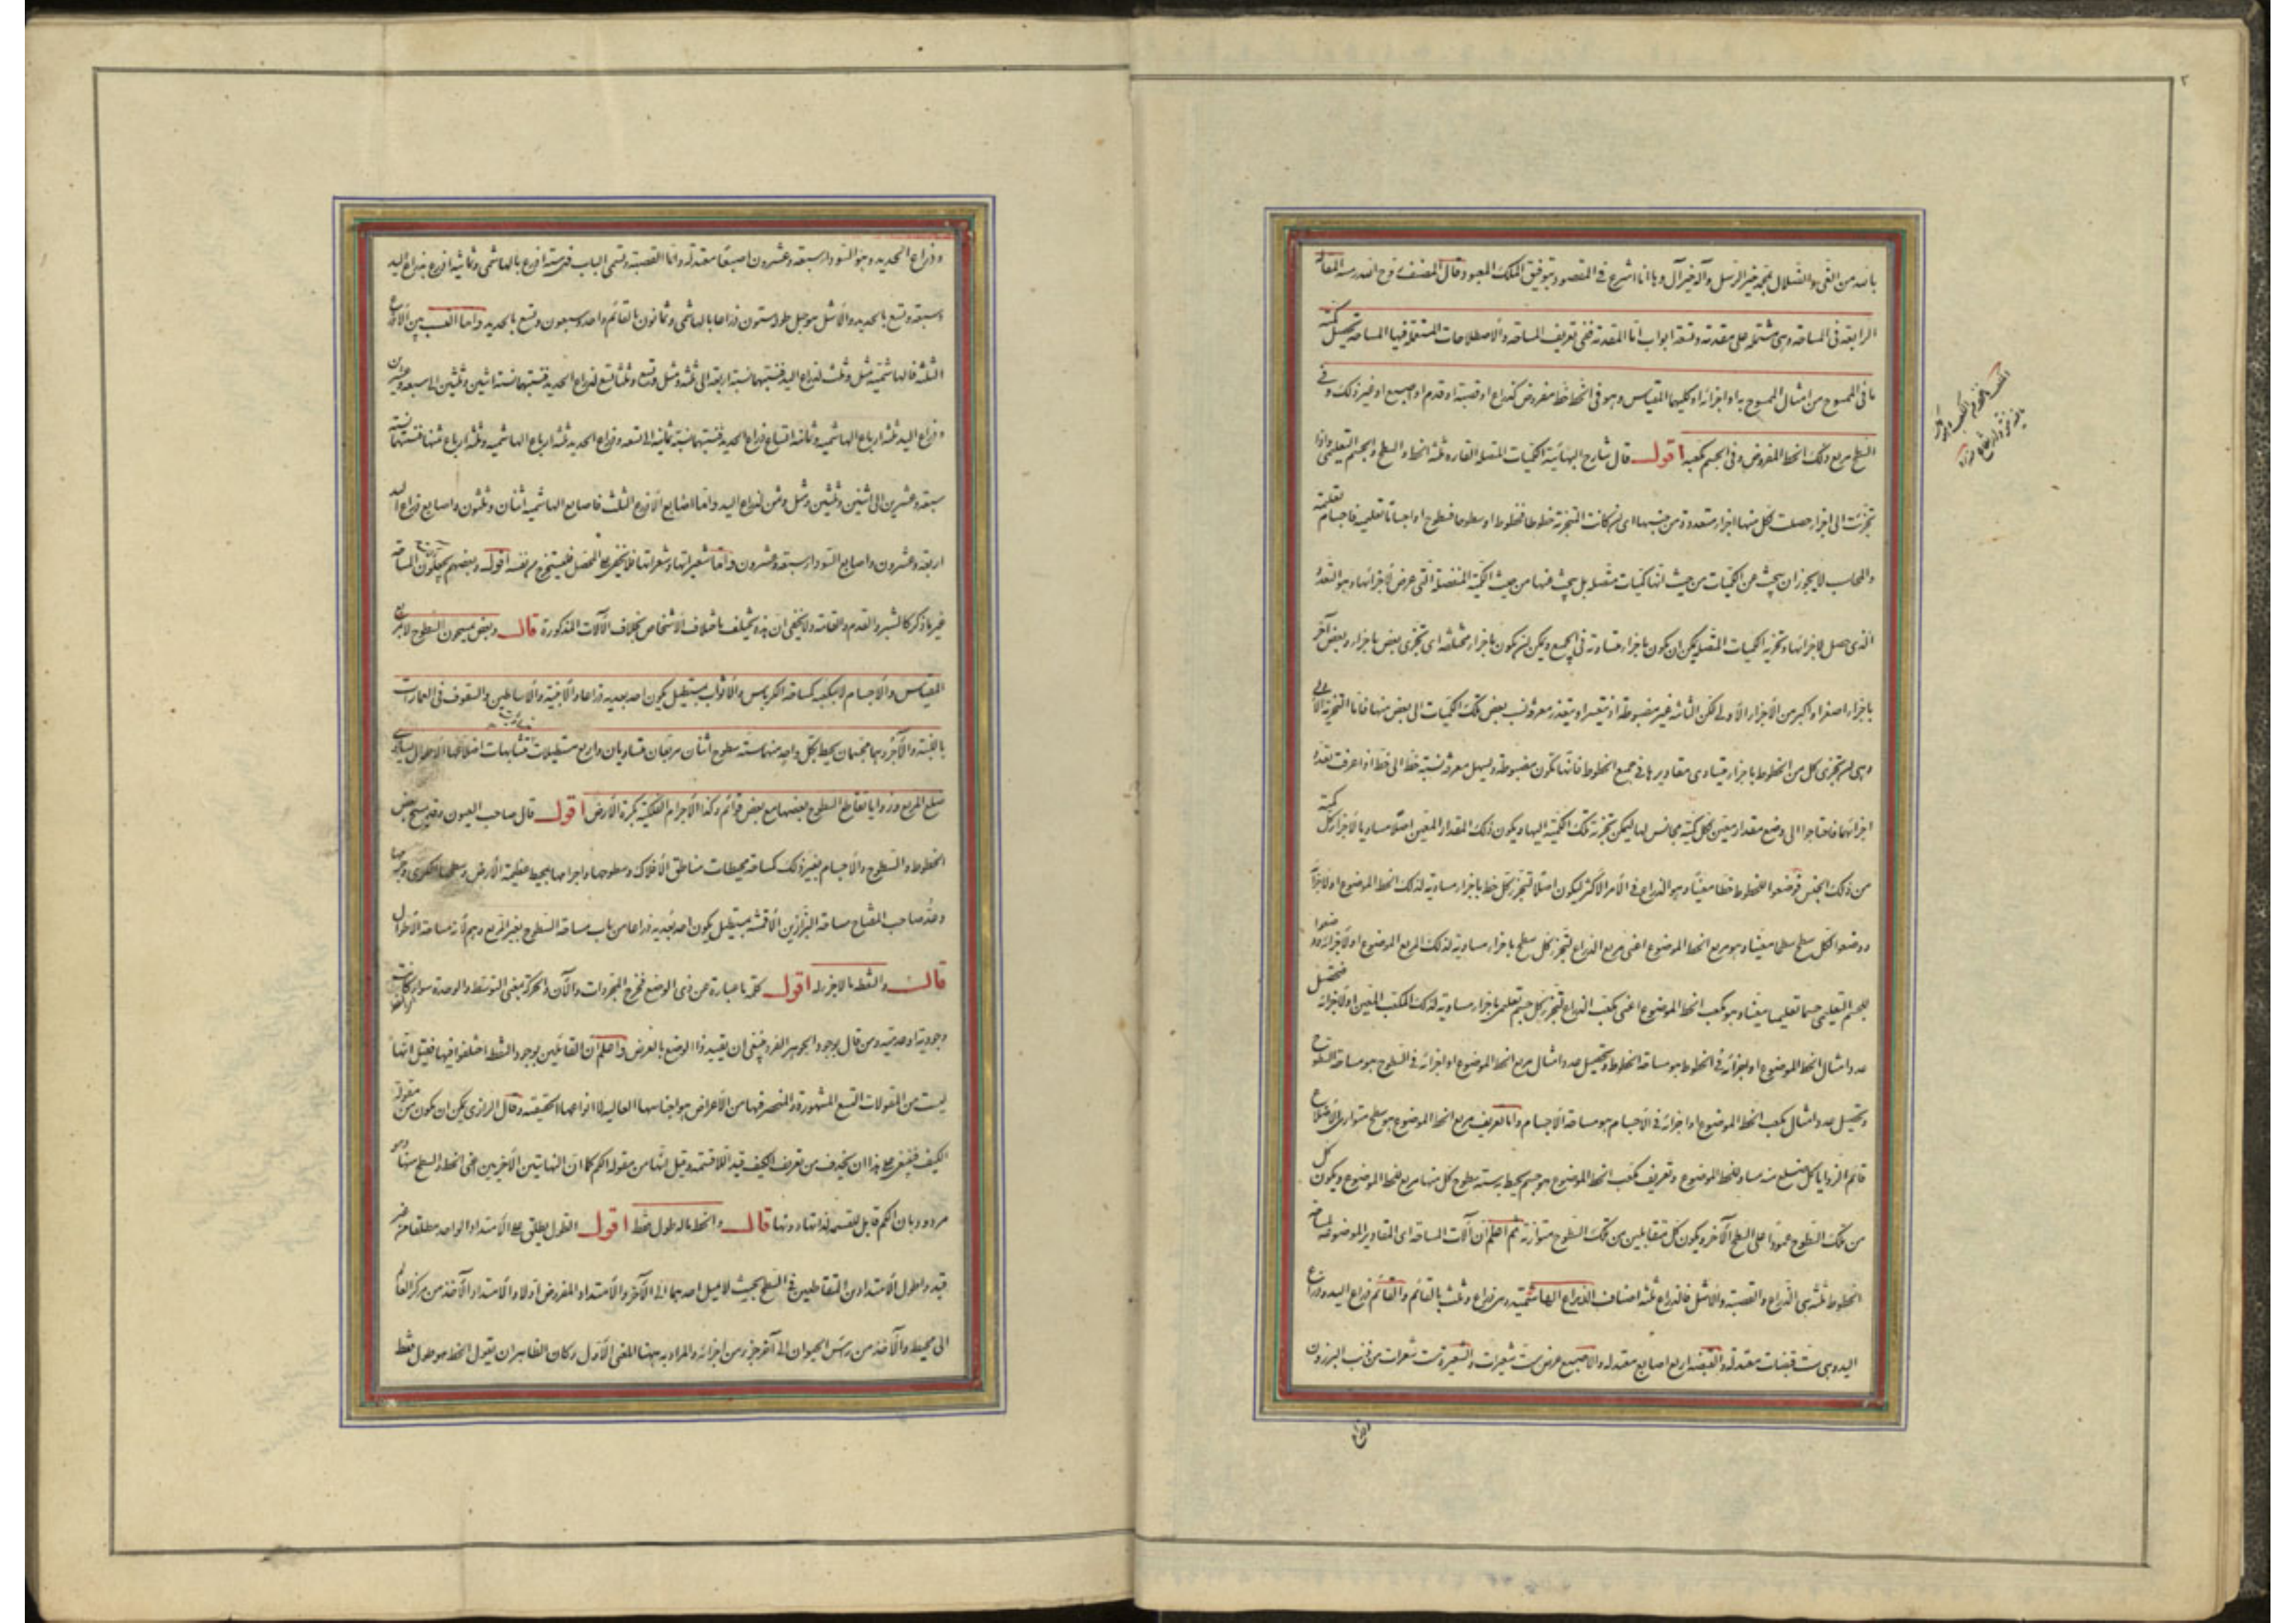 ٢
بالله من الغي والضلال بمحمد خير الرسل وآله خير آل وها انا اشرع في المقصود بتوفيق الملك المعبود قال المصنف روح الله رمسه المقالة
الرابعة في المساحة وهي مشتملة على مقدمة وتسعة ابواب اما المقدمة ففي تعريف المساحة والاصطلاحات المستعملة فيها المساحة تحصيل كمية
ما في الممسوح من امثال الممسوح به او اجزائه او كليهما المقياس وهو في الخط خط مفروض كذراع او قصبة او قدم او اصبع او غير ذلك وفي
السطح مربع ذلك الخط المفروض وفي الجسم مكعبه اقول قال شارح البهائية الكميات المتصلة القارة ثلثة الخط والسطح والجسم التعليمي واذا
تجزئت الى اجزاء حصلت لكل منها اجزاء متعددة من جنسها اى ان كانت التجزئة خطوطا فخطوط او سطوحا فسطوح او اجساما تعليمية فاجسام تعليمية
والمحاسب لا يجوز ان يبحث عن الكميات من حيث انها كميات متصلة بل يبحث عنها من حيث الكمية المنفصلة التي عرض لاجزائها وهو التعدد
الذى حصل لاجزائها وتجزية الكميات المتصلة يمكن ان يكون باجزاء متساوية في الجميع ويمكن ان يكون باجزاء مختلفة اى تجزى بعض باجزاء وبعض آخر
باجزاء اصغر او اكبر من الاجزاء الاولى لكن الثانية غير مضبوطة اذ يتعسر او يتعذر معرفة نسب بعض تلك الكميات الى بعض منها فاما التجزية الاولى
وهي ان تجزى كل من الخطوط باجزاء يتساوى مقاديرها في جميع الخطوط فانها تكون مضبوطة ويسهل معرفة نسبة خط الى خط اذا عرفت تعدد
اجزائهما فاحتاجوا الى وضع مقدار معين لكل كمية مجانس لها ليمكن تجزية تلك الكمية اليها ويكون ذلك المقدار المعين اصلا مساويا لاجزاء كل كمية
من ذلك الجنس فوضعوا للخطوط خطا معينا وهو الذراع في الامر الاكثر ليكون اصلا لتجزى كل خط باجزاء مساوية لذلك الخط الموضوع او لاجزائه
ووضعوا لكل سطح سطحا معينا وهو مربع الخط الموضوع اعني مربع الذراع لتجزى كل سطح باجزاء مساوية لذلك المربع الموضوع او لاجزائه ووضعوا
للجسم التعليمي جسما تعليميا معينا وهو مكعب الخط الموضوع اعني مكعب الذراع لتجزى كل جسم تعليمي باجزاء مساوية لذلك المكعب المعين او لاجزائه فتحصيل
عدد امثال الخط الموضوع او اجزائه في الخطوط هو مساحة الخطوط وتحصيل عدد امثال مربع الخط الموضوع او اجزائه في السطوح هو مساحة السطوح
وتحصيل عدد امثال مكعب الخط الموضوع او اجزائه في الاجسام هو مساحة الاجسام واما تعريف مربع الخط الموضوع هو سطح متوازى الاضلاع
قائم الزوايا كل ضلع منه مساو للخط الموضوع وتعريف مكعب الخط الموضوع هو جسم يحيط به ستة سطوح كل منها مربع للخط الموضوع ويكون كل
من تلك السطوح عمودا على السطح الآخر ويكون كل متقابلين من تلك السطوح متوازية ثم اعلم ان آلات المساحة اى المقادير الموضوعة لمساحة
الخطوط ثلثة هي الذراع والقصبة والاشل فالذراع ثلثة اصناف الذراع الهاشمية وهي ذراع وثلث بالقائم والقائم ذراع اليد وذراع
اليد وهي ست قبضات معتدلة والقبضة اربع اصابع معتدلة والاصبع عرض ست شعيرات والشعيرة ست شعرات من ذنب البرذون
وذراع الحديد وهو السوداء سبعة وعشرون اصبعا معتدلة واما القصبة وتسمى الباب فهي ستة اذرع بالهاشمي وثمانية اذرع بذراع اليد
وسبعة وتسع بالحديد والاشل هو حبل طوله ستون ذراعا بالهاشمي وثمانون بالقائم واحد وسبعون وتسع بالحديد واما النسب بين الاذرع
الثلثة فالهاشمية مثل وثلث لذراع اليد فنسبتهما نسبة اربعة الى ثلثة ومثل وتسع وثلثا تسع لذراع الحديد فنسبتهما نسبة اثنين وثلثين الى سبعة وعشرين
وذراع اليد ثلثة ارباع الهاشمية وثمانية اتساع ذراع الحديد فنسبتهما نسبة ثمانية الى تسعة وذراع الحديد ثلثة ارباع الهاشمية وثلثة ارباع ثمنها فنسبتهما نسبة
سبعة وعشرين الى اثنين وثلثين ومثل وثمن لذراع اليد واما اصابع الاذرع الثلث فاصابع الهاشمية اثنان وثلثون واصابع ذراع اليد
اربعة وعشرون واصابع السوداء سبعة وعشرون واما شعيراتها وشعراتها فلا يخفى على المحصل فليستخرج من نفسه اقول وبعضهم يجعلون المساحة
غير ما ذكر كالشبر والقدم والقامة ولا يخفى ان هذه يختلف باختلاف الاشخاص بخلاف الآلات المذكورة قال وبعض يمسحون السطوح لا بمربع
المقياس والاجسام لا بمكعبه كمساحة الكرباس والاثواب بمستطيل يكون احد بعديه ذراعا والابنية والاساطين والسقوف في العمارات
باللبنة والآجر وهما مجسمان يحيط بكل واحد منهما ستة سطوح اثنان مربعان متساويان واربع مستطيلات متشابهات اضلاعها الاطوال يساوى
ضلع المربع وزوايا تقاطع السطوح بعضها مع بعض قوائم وكذا الاجرام الفلكية بكرة الارض اقول قال صاحب العيون وقد يمسح بعض
الخطوط والسطوح والاجسام بغير ذلك كمساحة محيطات مناطق الافلاك وسطوحها واجرامها بمحيط عظيمة الارض وسطحها الكروى وجرمها
وعد صاحب المفتاح مساحة البزازين الاقمشة بمستطيل يكون احد بعديه ذراعا من باب مساحة السطوح بغير المربع وهم لانه مساحة الاطوال
قال والنقطة ما لا جزء له اقول كلمة ما عبارة عن ذى الوضع فخرج المجردات والآن والحركة بمعنى التوسط والوحدة سواء كانت
وجودية او عدمية ومن قال بوجود الجوهر الفرد فينبغي ان يقيد ذا الوضع بالعرض واعلم ان القائلين بوجود النقطة اختلفوا فيها فقيل انها
ليست من المقولات التسع المشهورة والمنحصر فيها من الاعراض هو اجناسها العالية لا انواعها الحقيقية وقال الرازى يمكن ان يكون من مقولة
الكيف فينبغي على هذا ان يحذف من تعريف الكيف قيد اللاقسمة وقيل انها من مقولة الكم كما ان النهايتين الاخريين اعني الخط والسطح منها وهو
مردود بان الكم قابل للقسمة لذاتها دونها قال والخط ما له طول فقط اقول الطول يطلق على الامتداد الواحد مطلقا من غير
قيد واطول الامتدادين المتقاطعين في السطح بحيث لا يميل احدهما الى الآخر والامتداد المفروض اولا والامتداد الآخذ من مركز العالم
الى محيطه والآخذ من رأس الحيوان الى آخر جزء من اجزائه والمراد به ههنا المعنى الاول وكان الظاهر ان يقول الخط هو طول فقط